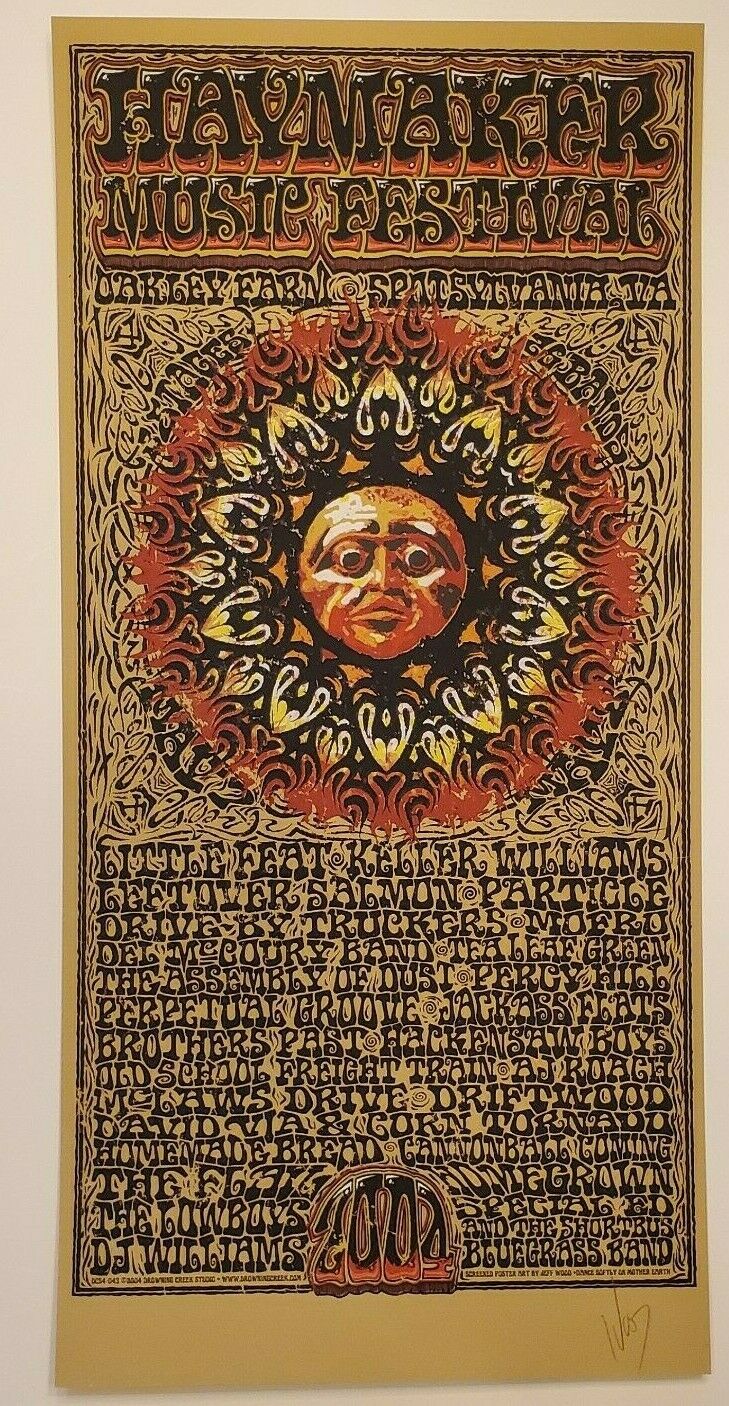 HAYMAKER
MUSIC FESTIVAL
OAKLEY FARM SPOTSYLVANIA, VA
LITTLE FEAT KELLER WILLIAMS
LEFTOVER SALMON PARTICLE
DRIVE BY TRUCKERS MOFRO
DEL MCCOURY BAND TEA LEAF GREEN
THE ASSEMBLY OF DUST PERCY HILL
PERPETUAL GROOVE JACKASS FLATS
BROTHERS PAST HACKENSAW BOYS
OLD SCHOOL FREIGHT TRAIN AJ ROACH
MCLAWS DRIVE DRIFTWOOD
DAVID VIA & CORN TORNADO
HOMEMADE BREAD CANNONBALL COMING
THE
THE LOWBOYS
DJ WILLIAMS
2004
SPECIAL ED
AND THE SHORTBUS
BLUEGRASS BAND
DCS4-043 ©2004 DROWNING CREEK STUDIO • WWW.DROWNINGCREEK.COM
SCREENED POSTER ART BY JEFF WOOD • DANCE SOFTLY ON MOTHER EARTH
Wood